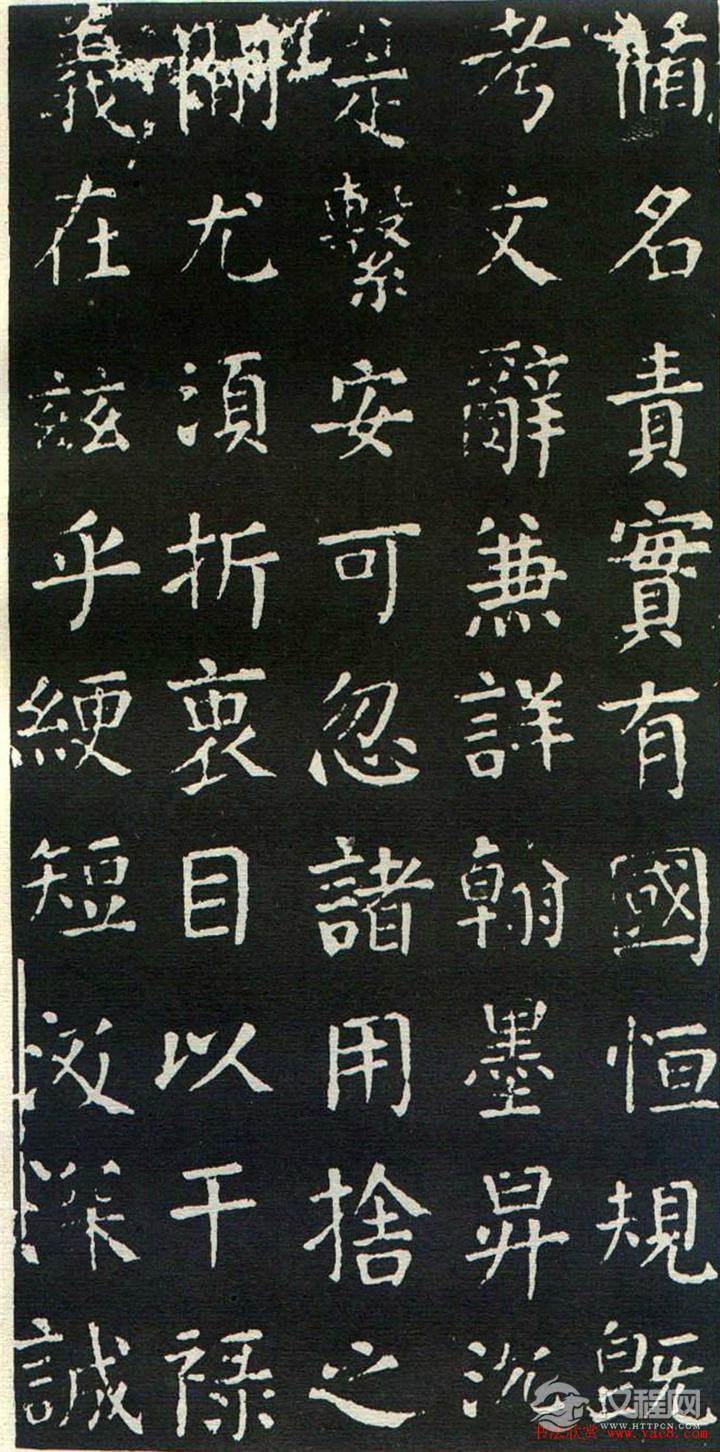 循名責實有國恒規既
考文辭兼詳翰墨昇沉
是繫安可忽諸用捨之
間尤須折衷目以干祿
義在茲乎綆短汲深誠
汉程网
WWW.HTTPCN.COM
书法欣赏 www.yac8.com